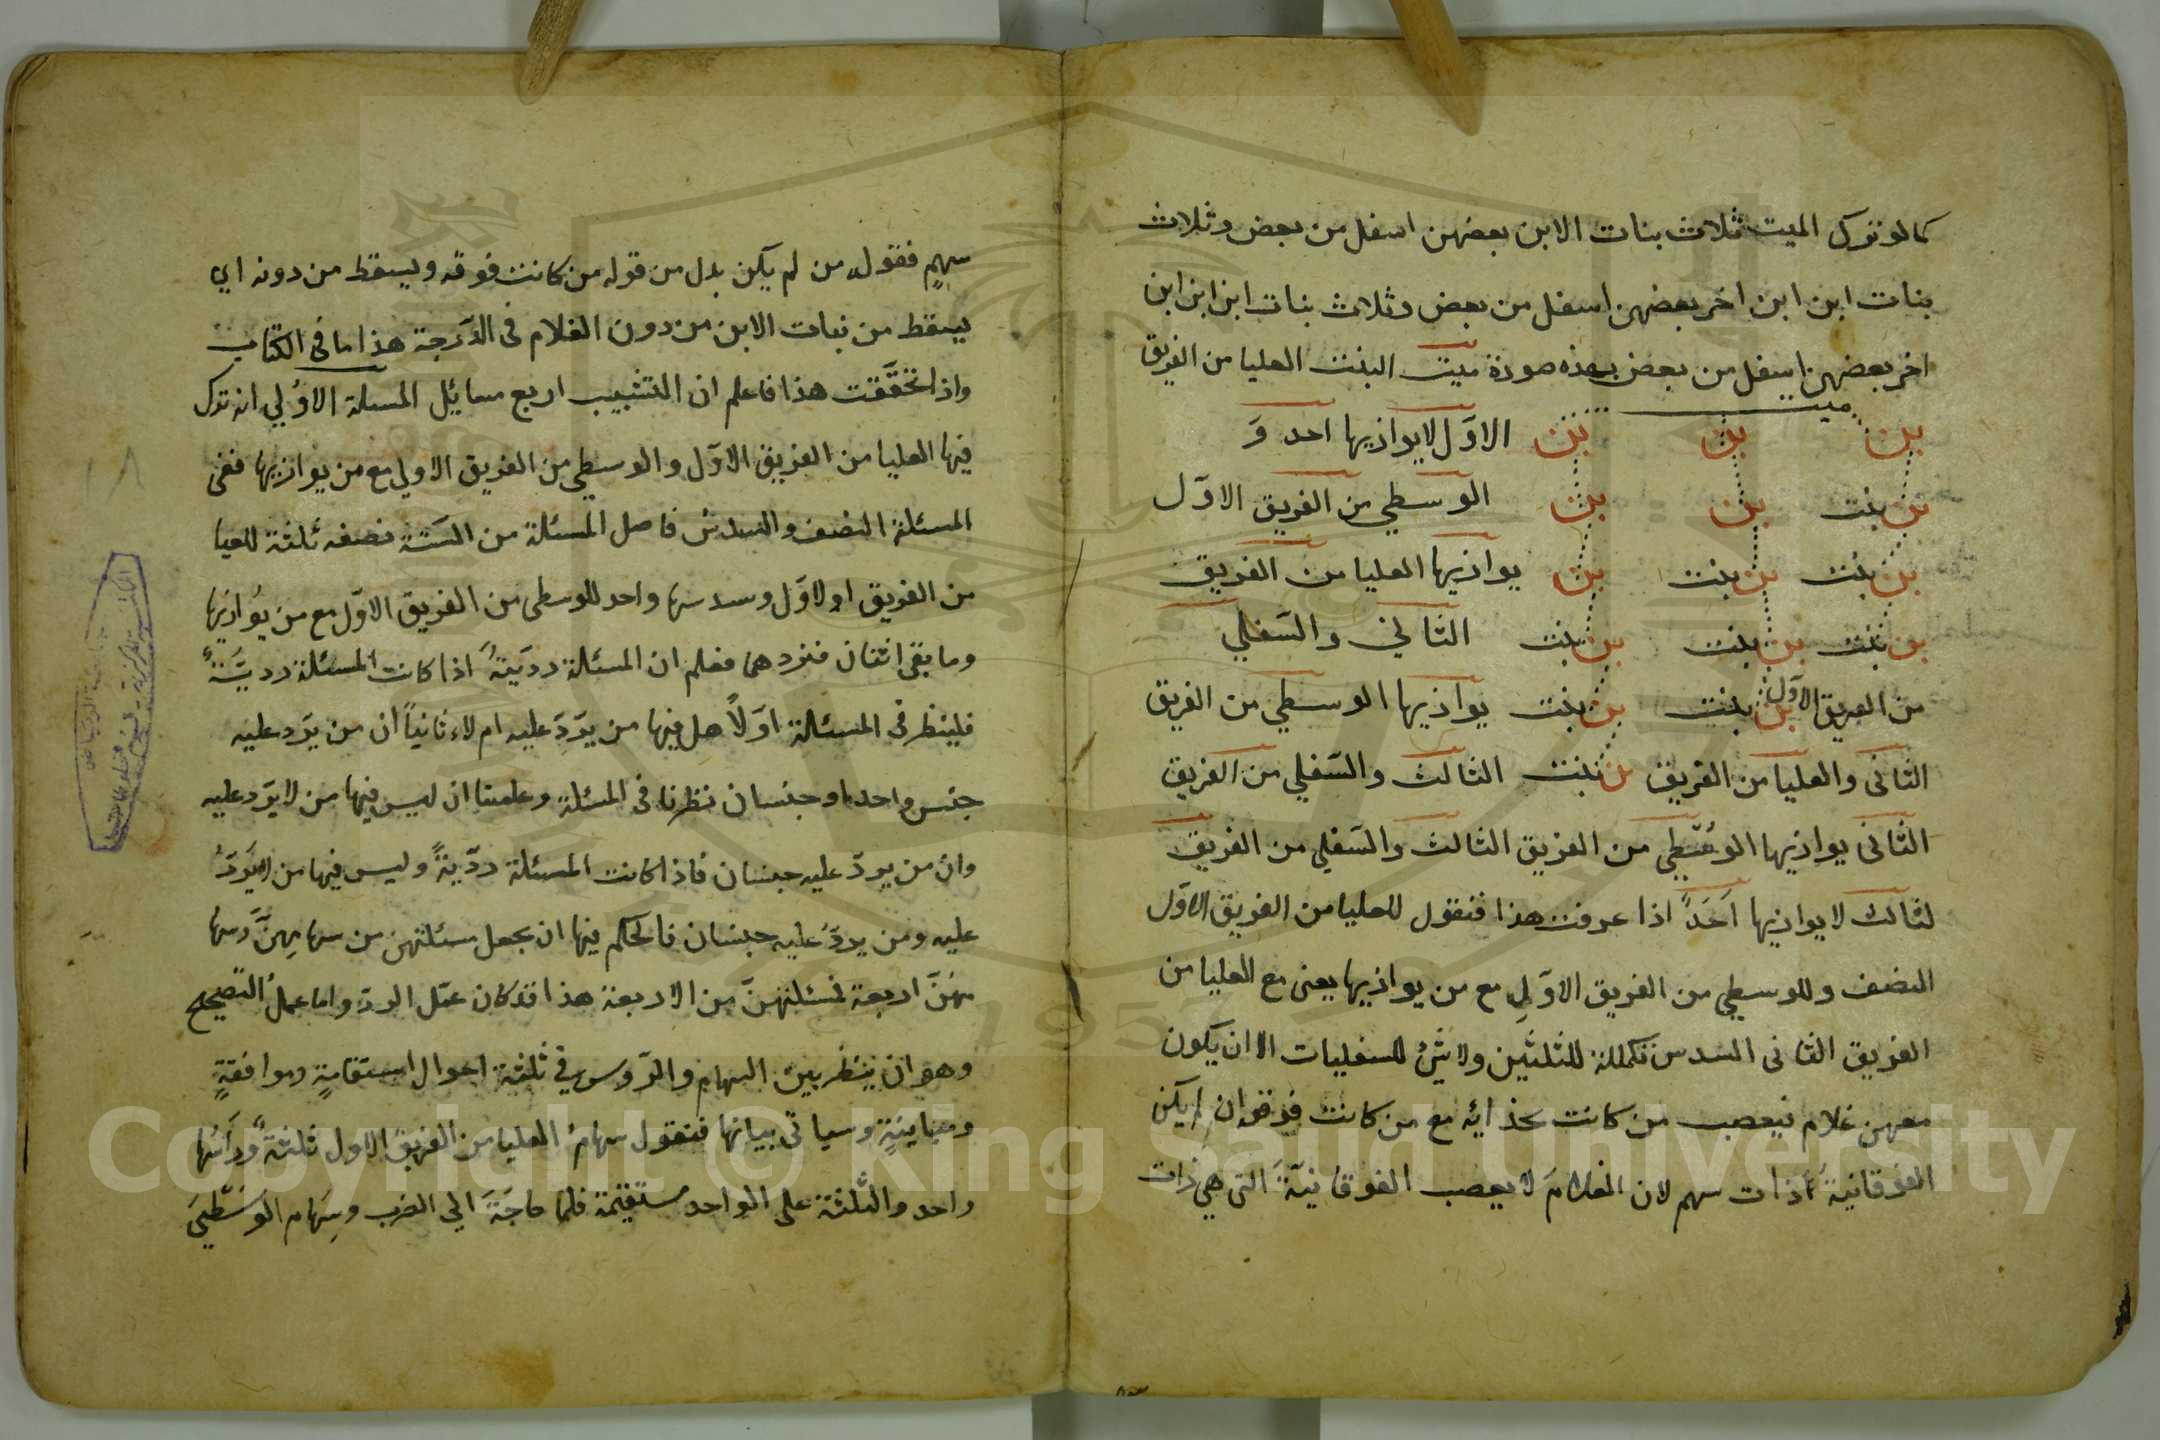 كما لو ترك الميت ثلاث بنات الابن بعضهن اسفل من بعض وثلاث
بنات ابن ابن اخر بعضهن اسفل من بعض وثلاث بنات ابن ابن ابن
اخر بعضهن اسفل من بعض بهذه صورة ميت البنت العليا من الفريق
ميت
بن بن بن الاوّل لا يوازيها احد وَ
بن بنت بن بن الوسطي من الفريق الاوّل
بن بنت بن بنت بن يوازيها العليا من الفريق
بن بنت بن بنت بن بنت الثاني والسّفلي
من الفريق الاوّل بن بنت بن بنت يوازيها الوسطي من الفريق
الثانى والعليا من الفريق بن بنت الثالث والسّفلي من الفريق
الثانى يوازيها الوسطي من الفريق الثالث والسّفلي من الفريق
لثالث لا يوازيها اَحَدٌ اذا عرفت هذا فنقول للعليا من الفريق الاوّل
النصف وللوسطي من الفريق الاوّلِ مع من يوازيها يعنى مع العليا من
الفريق الثانى السدس تكملة للثلثين ولا شئ للسفليات الا ان يكون
معهن غلام فيعصب من كانت بحذائه مع من كانت فوقه ان لم يكن
الفوقانية ذات سهم لان الغلامَ لا يعصب الفوقانيّةَ التى هي ذات
سهمٍ فقول من لم يكن بدل من قوله من كانت فوقه ويسقط من دونه اي
يسقط من بنات الابن من دون الغلام فى الدّرجة هذا ما فى الكتاب
واذا تحقّقت هذا فاعلم ان التشبيب اربع مسائل المسلة الاوُلي انه ترك
فيها العليا من الفريق الاوّل والوسطي من الفريق الاولي مع من يوازيها ففى
المسئلة النصف والسدس فاصل المسئلة من الستّة نصفه ثلثة للعيا
من الفريق اولاوّل وسدسها واحد للوسطى من الفريق الاوّل مع من يُوازيها
وما بقى اثنان فنردهما فعلم ان المسئلة ردّيّةٌ اذا كانت المسئلة ردّيّةً
فلينظر فى المسئلة اوّلاً هل فيها من يرّدّ عليه ام لا، ثانياً ان من يرّد عليه
جنس واحد او جنسان نظرنا فى المسئلة وعلمنا ان ليس فيها من لا يرّد عليه
وان من يردّ عليه جنسان فاذا كانت المسئلة ردّيّةً وليس فيها من لا يَردّ
عليه ومن يردّ عليه جنسان فالحكم فيها ان يجعل مسئلتهن من سهامِهنَّ وسها
مهنَّ اربعة فمسئلتهنَّ من الاربعة هذا قد كان عمَل الردّ واما عملُ التصحيح
وهو ان ينظر بين السهام والرّوس في ثلثة احوال استقامةٍ وموافقةٍ
ومباينةٍ وسياتى بيانها فنقول سهامُ العليا من الفريق الاول ثلثةٌ ورأسُها
واحد والثّلثة على الواحد مستقيمة فلما حاجَةَ الي الضرب وسِهام الوسطيَ
Copyright © King Saud University
1957